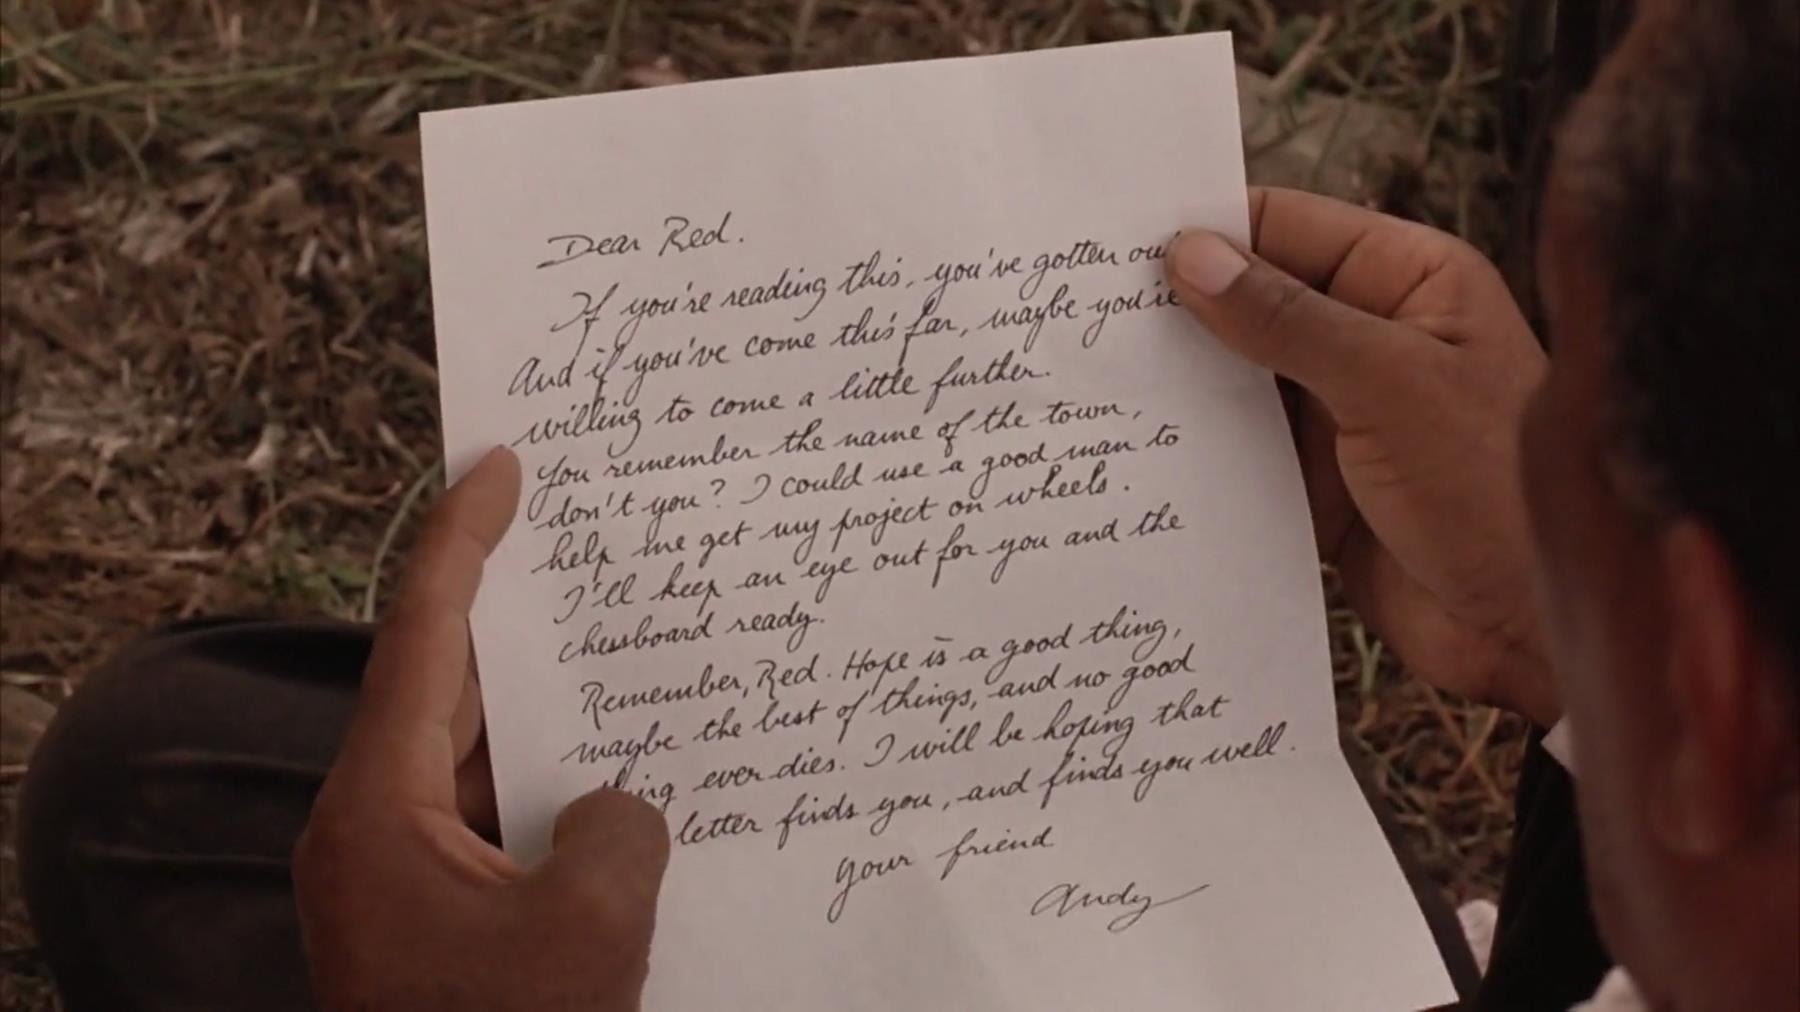 Dear Red.
If you're reading this, you've gotten out
And if you've come this far, maybe you're
willing to come a little further.
you remember the name of the town,
don't you? I could use a good man to
help me get my project on wheels.
I'll keep an eye out for you and the
chessboard ready.
Remember, Red. Hope is a good thing,
maybe the best of things, and no good
thing ever dies. I will be hoping that
letter finds you, and finds you well.
your friend
Andy